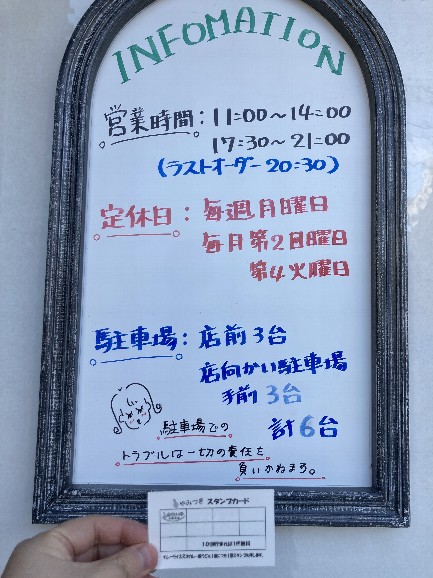 INFOMATION
営業時間：11:00～14:00
17:30～21:00
(ラストオーダー20:30)
定休日：毎週月曜日
毎月第2日曜日
第4火曜日
駐車場：店前3台
店向かい駐車場
手前3台
計6台
駐車場での
トラブルは一切の責任を
負いかねます。
やみつき スタンプカード